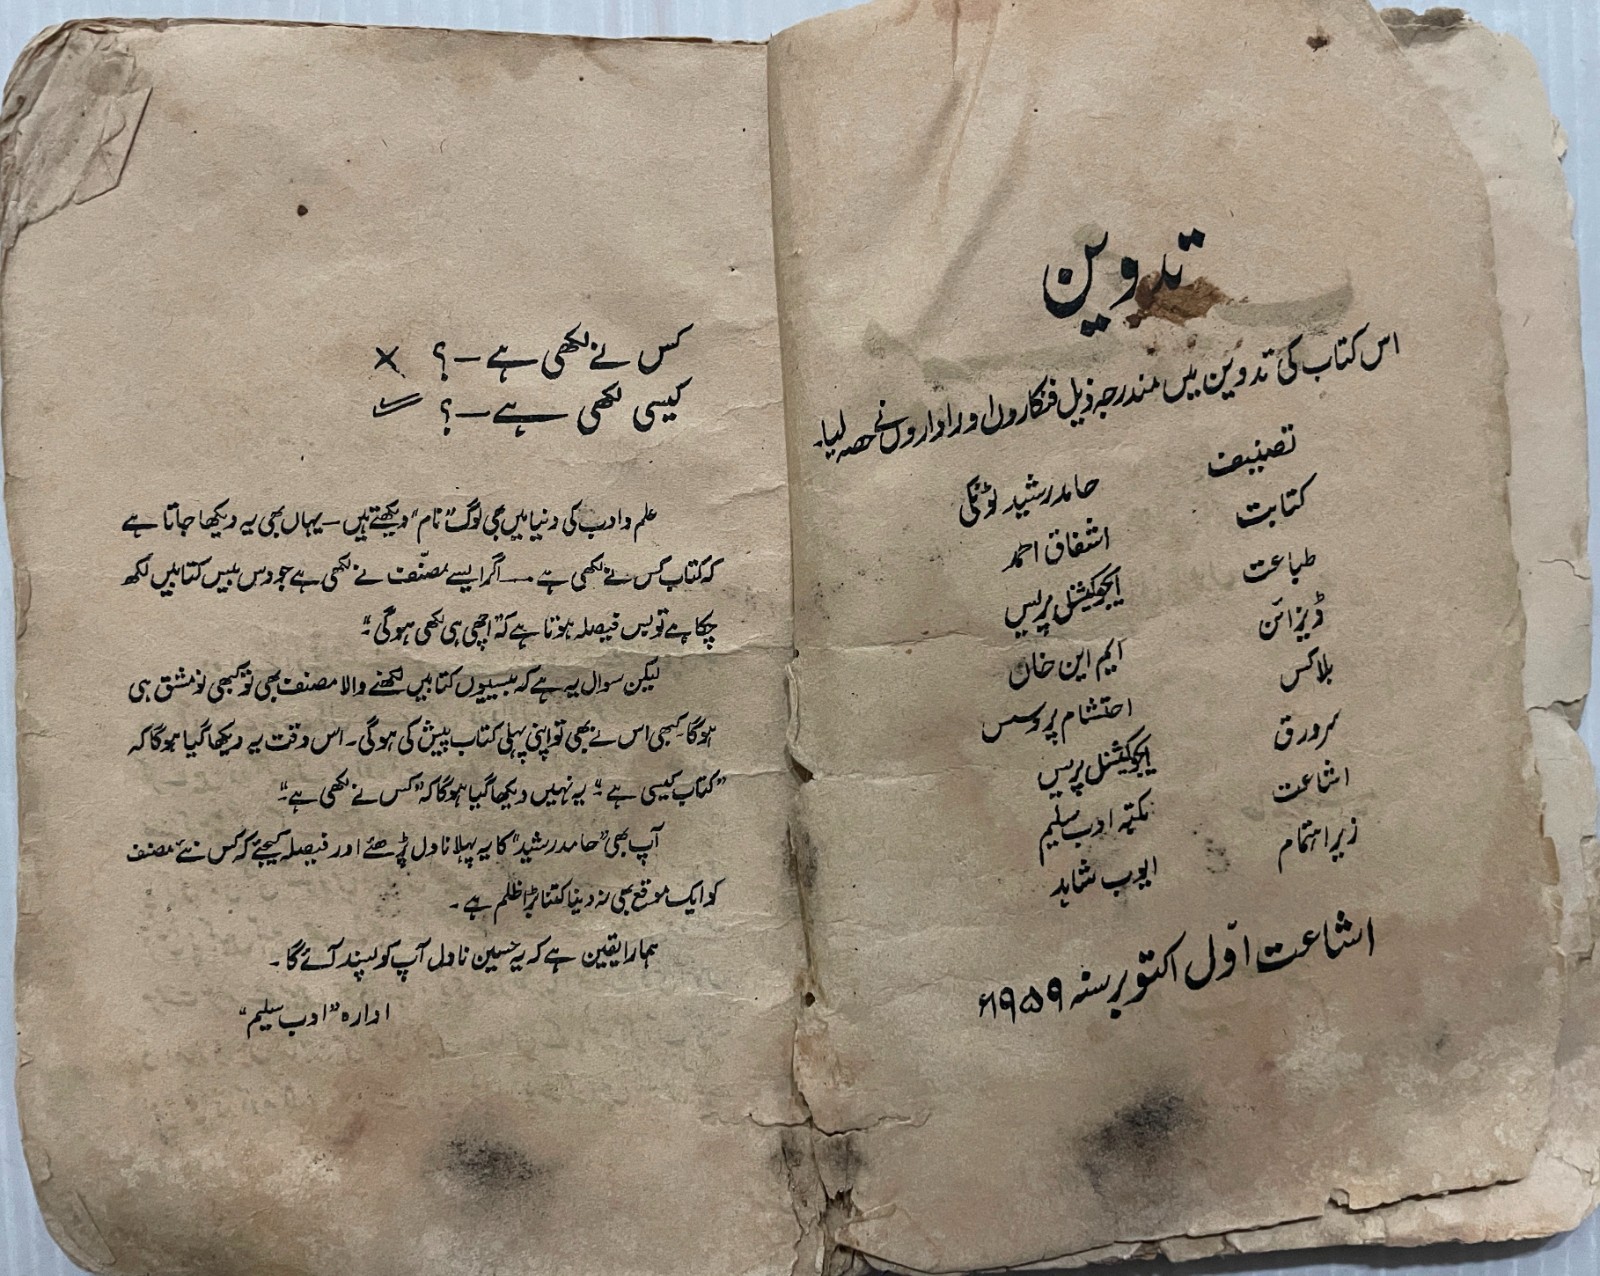 تدوین
اس کتاب کی تدوین میں مندرجہ ذیل فنکاروں اور اداروں نے حصہ لیا۔
تصنیف حامد رشید ٹونکی
کتابت اشفاق احمد
طباعت ایجوکیشنل پریس
ڈیزائن ایم این خان
بلاکس احتشام پروسس
سرورق ایجوکیشنل پریس
اشاعت نکتہ ادب سلیم
زیر اہتمام ایوب شاہد
اشاعت اوّل اکتوبر سنہ ۱۹۵۹ء
کس نے لکھی ہے — ؟ ×
کیسی لکھی ہے — ؟
علم و ادب کی دنیا میں بھی لوگ "نام" دیکھتے ہیں — یہاں بھی یہ دیکھا جاتا ہے
کہ کتاب کس نے لکھی ہے — اگر ایسے مصنّف نے لکھی ہے جو دس بیس کتابیں لکھ
چکا ہے تو بس فیصلہ ہوتا ہے کہ "اچھی ہی لکھی ہوگی۔"
لیکن سوال یہ ہے کہ بیسیوں کتابیں لکھنے والا مصنف بھی تو کبھی نو مشق ہی
ہوگا۔ کبھی اس نے بھی تو اپنی پہلی کتاب پیش کی ہوگی۔ اس وقت یہ دیکھا گیا ہوگا کہ
"کتاب کیسی ہے"۔ یہ نہیں دیکھا گیا ہوگا کہ "کس نے لکھی ہے"۔
آپ بھی "حامد رشید" کا یہ پہلا ناول پڑھئے اور فیصلہ کیجئے کہ کس نئے مصنف
کو ایک موقع بھی نہ دینا کتنا بڑا ظلم ہے ۔
ہمارا یقین ہے کہ یہ حسین ناول آپ کو پسند آئے گا ۔
ادارہ "ادب سلیم"